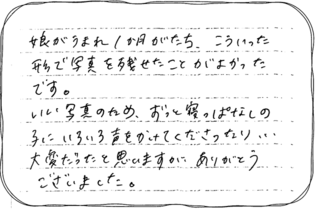 娘がうまれ1か月がたち、こういった
形で写真を残せたことがよかった
です。
いい写真のため、ずっと寝っぱなしの
子にいろいろ声をかけてくださったり…
大変だったと思いますが ありがとう
ございました。